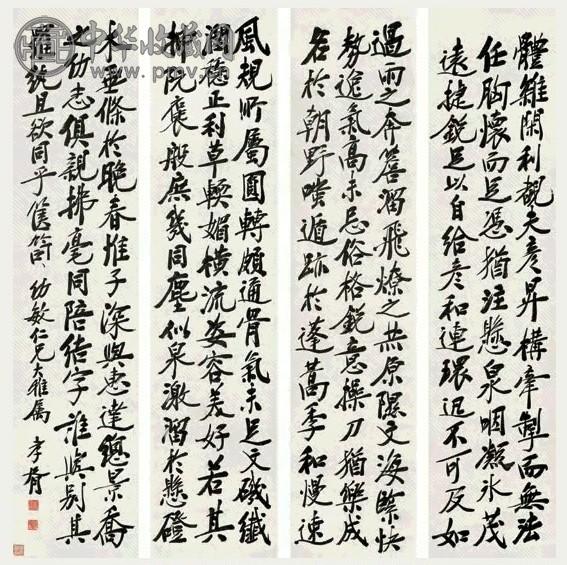 體雖閑利觀夫彥昇構牽掣而無法
任胸懷而足憑猶注懸泉咽凝氷茂
遠捷銳足以自給彥和連環迅不可及如
過雨之奔簷溜飛燎之共原隰文海際快
勢逸氣高未忌俗格銳意操刀猶樂成
名於朝野嗤遁跡於蓬蒿季和慢速
風規所屬圓轉頗通骨氣未足文磯纖
潤穩正利草輭媚橫流姿容美好若其
拂院褒般庶幾同塵似泉激溜於懸磴
木垂條於晚春惟子深與惠達總景喬
之幼志俱親拂毫同陪結字誰與別其
羅紈且欲同乎篋笥 幼敏仁兄大雅屬 孝胥
中华收藏网
www.pmv.cn